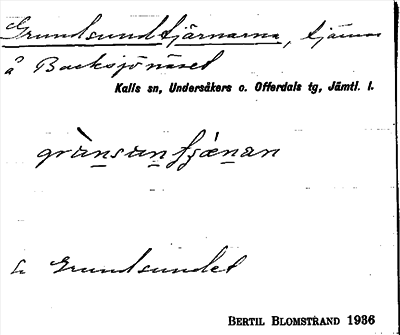 Grundsundtjärnarna, tjärnar
å Backsjönäset
Kalls sn, Undersåkers o. Offerdals tg, Jämtl. l.
grànsuntjǽnan
Grundsundet
BERTIL BLOMSTRAND 1936